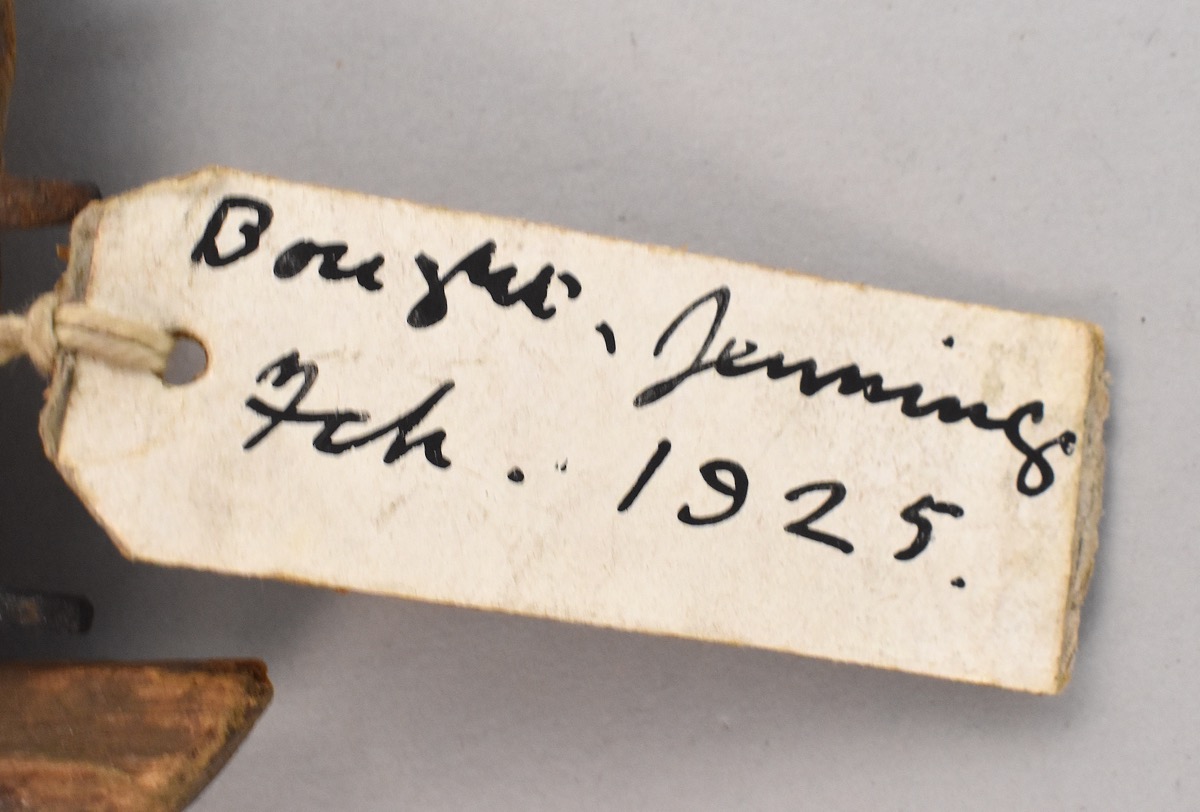 Bought, Jennings
Feb. 1925.